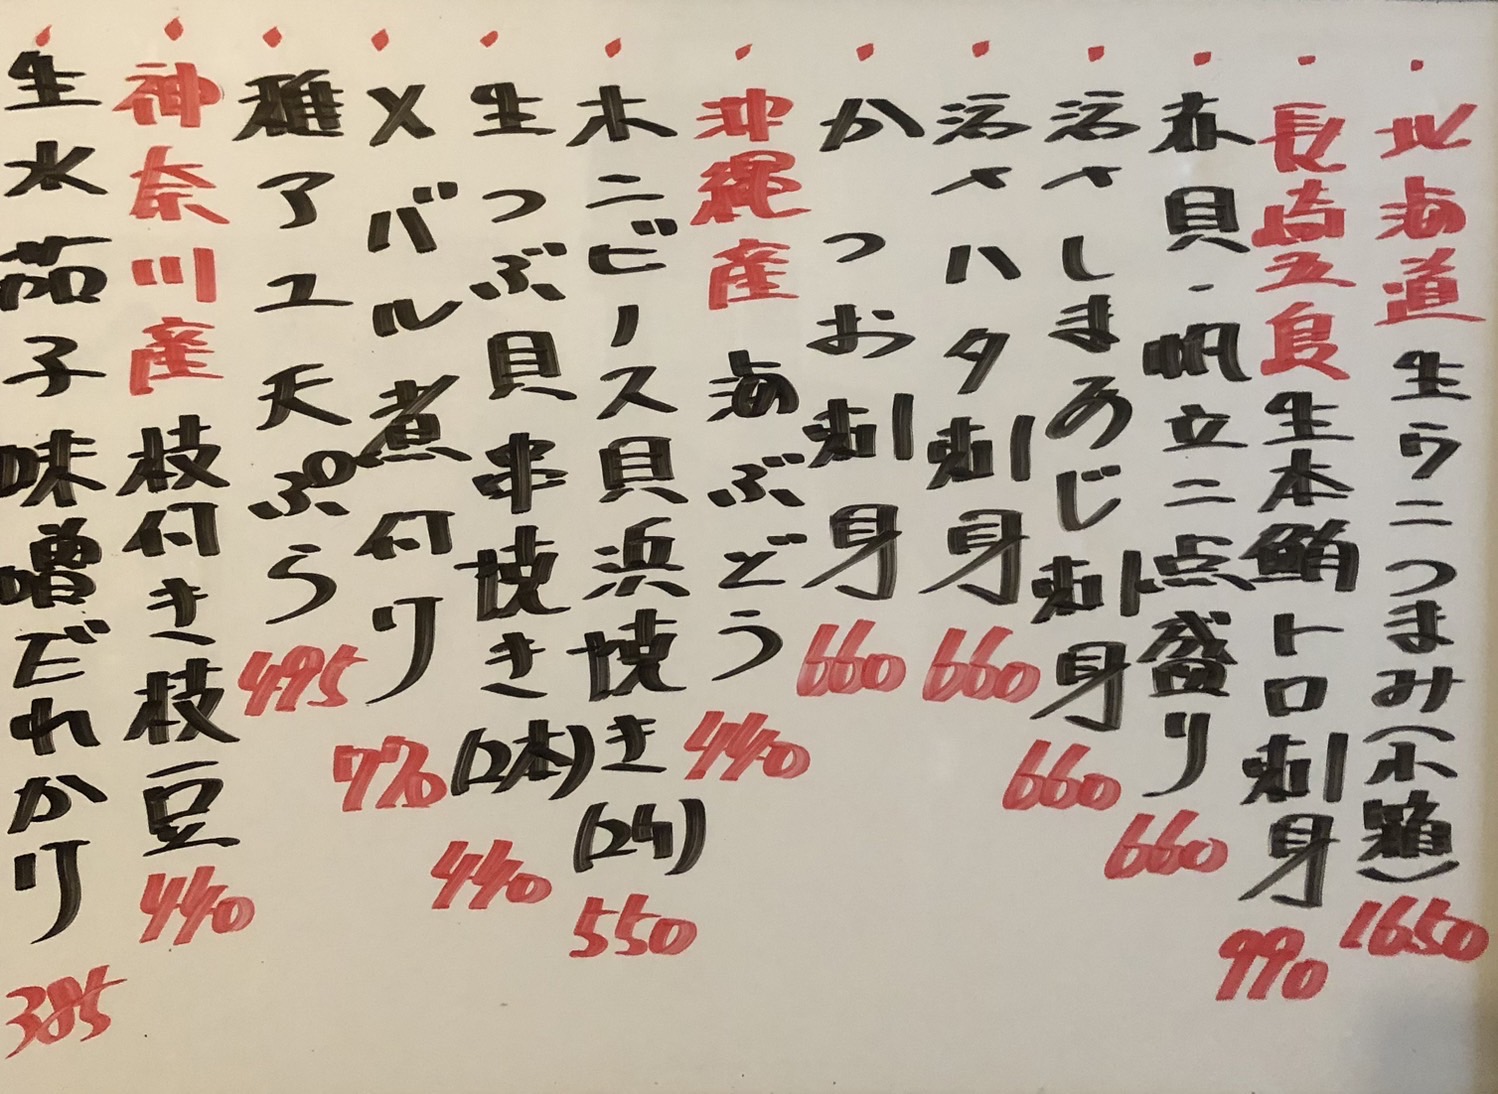 北海道 生ウニつまみ(小箱) 1650
長崎五島 生本鮪トロ刺身 990
赤貝・帆立二点盛り 660
活〆しまあじ刺身 660
活〆ハタ刺身 660
かつお刺身 660
沖縄産 海ぶどう 440
ホンビノス貝浜焼き(2ケ) 550
生つぶ貝串焼き(2本) 440
メバル煮付り 770
稚アユ天ぷら 495
神奈川産 枝付き枝豆 440
生水茄子味噌だれかけ 385